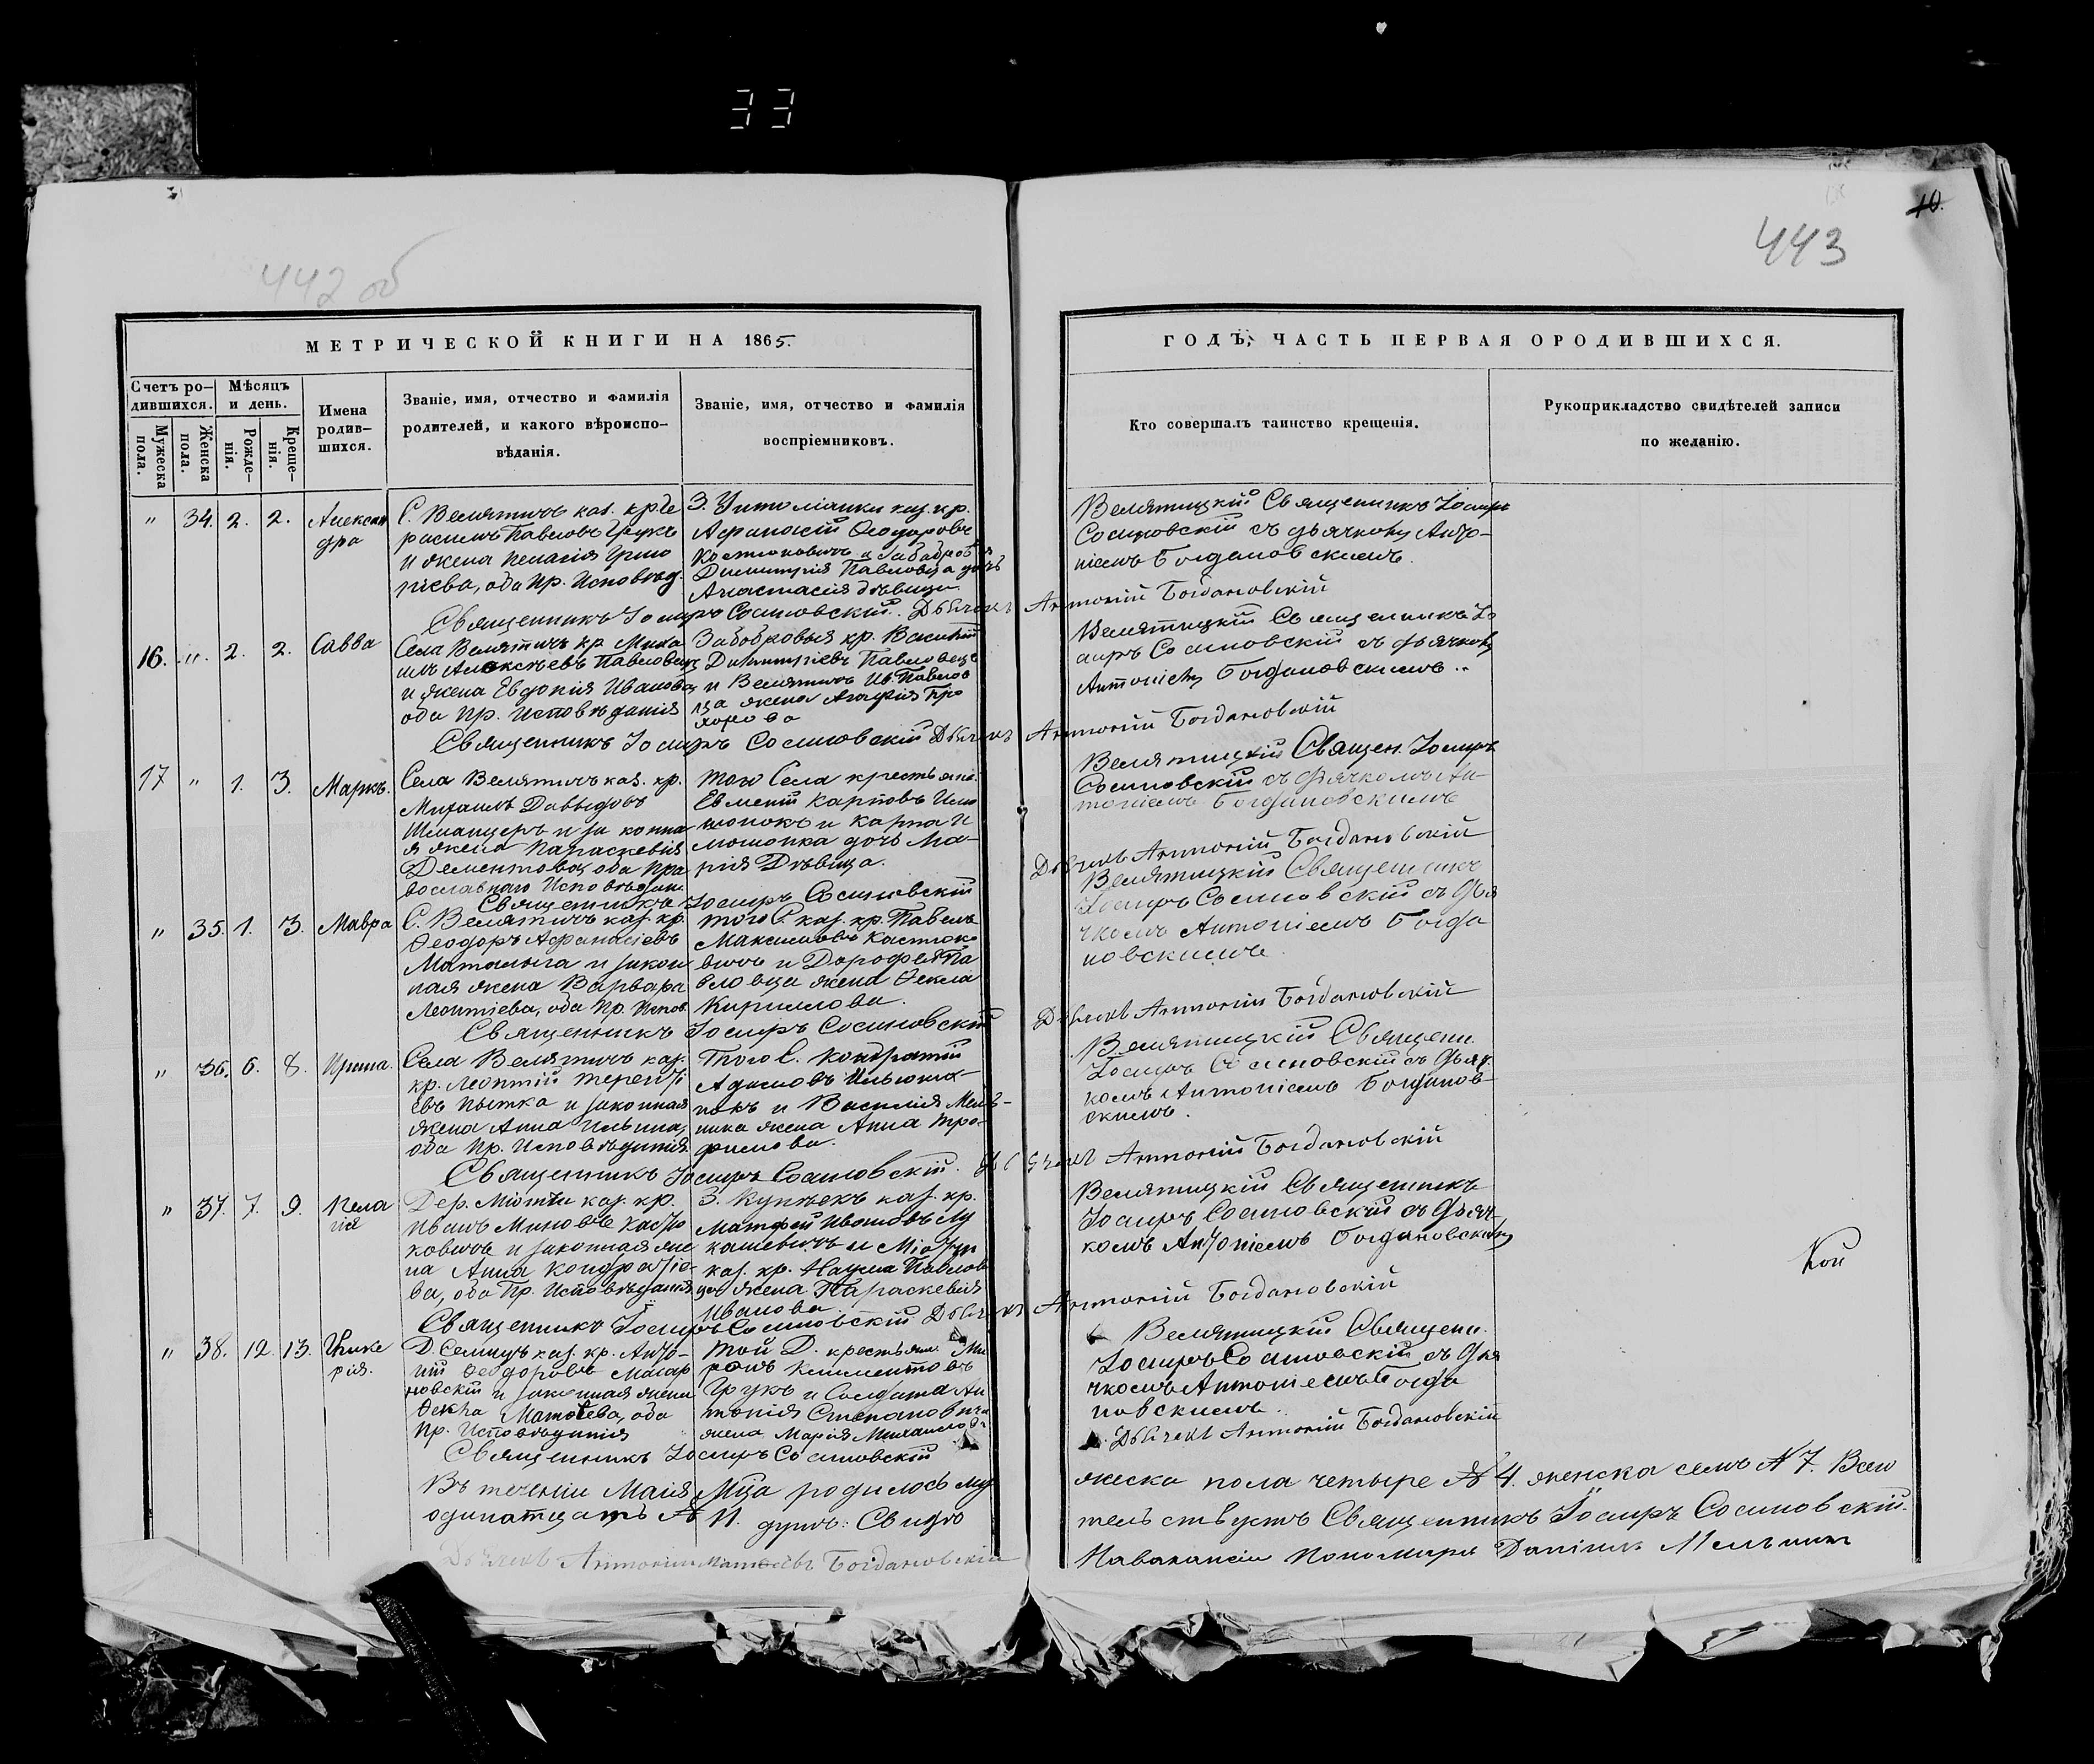 33
442 об
443
10.
МЕТРИЧЕСКОЙ КНИГИ НА 1865.
Счетъ ро-
дившихся.
Мѣсяцъ
и день.
Мужеска
пола.
Женска
пола.
Рожде-
нія.
Креще-
нія.
Имена
родив-
шихся.
Званіе, имя, отчество и фамилія
родителей, и какого вѣроиспо-
вѣданія.
Званіе, имя, отчество и фамилія
воспріемниковъ.
ГОДЪ, ЧАСТЬ ПЕРВАЯ ОРОДИВШИХСЯ.
Кто совершалъ таинство крещенія.
Рукоприкладство свидѣтелей записи
по желанію.
" 34. 2. 2.
Алексан
дра
С. Велятичъ каз. кр. Ге
расимъ Павловъ Грукъ
и жена Пелагія Григо
ріева, оба Пр. Исповѣд.
Афанасій Ѳеодоровъ
Костюковичъ и Забобров
Димитрія Павловца дочь
Анастасія дѣвица
Велятицкій Священникъ Іосифъ
Сосиновскій съ дьячкомъ Анто-
ніемъ Богдановскимъ.
Священникъ Іосифъ Сосиновскій. Дьячекъ Антоній Богдановскій
16. " 2. 2.
Савва
Села Велятичъ кр. Миха
илъ Алексѣевъ Павловецъ
и жена Евдокія Иванова
оба Пр. Исповѣданія
Забобровья кр. Василій
Димитріевъ Павловецъ
и Велятичъ Ив. Павлов
ца жена Агафія Про
хорова
Велятицкій Священникъ Іо
сифъ Сосиновскій съ дьячкомъ
Антоніемъ Богдановскимъ..
Священникъ Іосифъ Сосиновскій Дьячекъ Антоній Богдановскій
17 " 1. 3.
Маркъ.
Села Велятичъ каз. кр.
Михаилъ Давыдовъ
и законна
я жена Параскевія
Дементіова, оба Пра
вославнаго Исповѣдан.
Того Села крестьяни.
Евменій Карповъ Илю
шонокъ и Карпа И
люшонка дочь Ма-
рія Дѣвица.
Велятицкій Священ. Іосифъ
Сосиновскій съ дьячкомъ Ан-
тоніемъ Богдановскимъ
Дьячекъ Антоній Богдановскій
Священникъ Іосифъ Сосиновскій
" 35. 1. 3.
Мавра
С. Велятичъ каз. кр.
Ѳеодоръ Афанасіевъ
Маталыга и закон
ная жена Варвара
Леонтіева, оба Пр. Испов.
того С. каз. кр. Павелъ
Максимовъ Костюко
вичъ и Дорофея Па
вловца жена Ѳекла
Кириллова.
Велятицкій Священникъ
Іосифъ Сосиновскій съ дья
чкомъ Антоніемъ Богда
новскимъ.
Священникъ Іосифъ Сосиновскій Дьячекъ Антоній Богдановскій
" 36. 6. 8.
Ирина.
Села Велятичъ каз.
кр. Леонтій Теренті
евъ Пытка и законная
жена Анна Ильина,
оба Пр. Исповѣданія
Того С. Кондратій
Адамовъ Ильюшо-
нокъ и Василія Мель-
ника жена Анна Тро-
фимова.
Велятицкій Священ.
Іосифъ Сосиновскій съ дьяч.
комъ Антоніемъ Богданов-
скимъ.
Священникъ Іосифъ Сосиновскій. Дьячекъ Антоній Богдановскій
" 37. 7. 9.
Пела
гія
Дер. Мюты каз. кр.
Иванъ Миновъ Костю
ковичъ и законная же
на Анна Кондратіе-
ва, оба Пр. Исповѣданія
каз. кр.
Матфей Ивановъ Лу
кашевичъ и
каз. кр. Наума Павлов
ца жена Параскевія
Иванова
Велятицкій Священникъ
Іосифъ Сосиновскій съ дьяч-
комъ Антоніемъ Богдановскимъ
Коп
Священникъ Іосифъ Сосиновскій Дьячекъ Антоній Богдановскій
" 38. 12. 13.
Глике
рія.
Д. Селищъ каз. кр. Анто-
ній Ѳеодоровъ Макар
новскій и законная жена
Ѳекла Матѳеева, оба
Пр. Исповѣданія
Той Д. крестьян. Ми
ронъ Климентовъ
Грукъ и Солдата Ан
тонія Степановича
жена Марія Михайлова
Велятицкій Священ.
Іосифъ Сосиновскій съ дья
чкомъ Антоніемъ Богда
новскимъ.
Дьячекъ Антоній Богдановскій
Священникъ Іосифъ Сосиновскій
Въ теченіи Маія Мца родилось му
жеска пола четыре № 4. женска семь № 7. Всего
одинатцать № 11. душъ: Свидѣ
тельствуетъ Священникъ Іосифъ Сосиновскій.
Дьячекъ Антоній Матѳеевъ Богдановскій
Навакансіи Пономаря Даніилъ Мельник